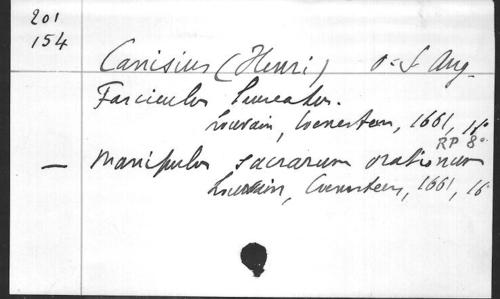 201
154
Canisius (Henri) o. S. Aug.
Fasciculus laureatus.
Louvain, Coenesteen, 1661, 16°
RP 8°
— Manipulus sacrarum orationum
Louvain, Coenesteen, 1661, 16